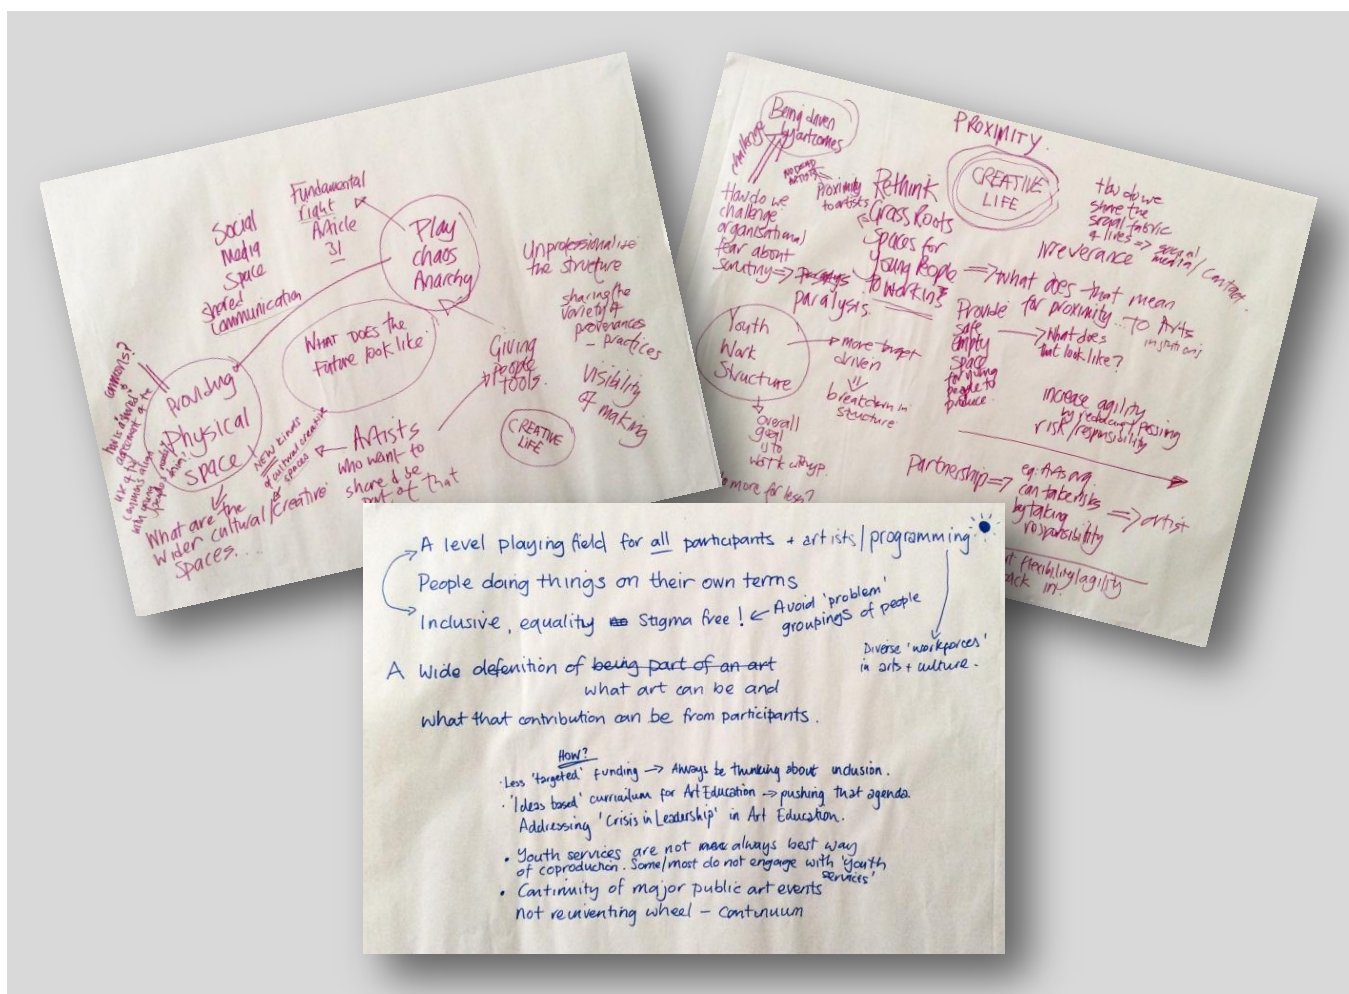 Fundamental
right
Article
31
Social
Media
Space
shared
communication
Play
chaos
Anarchy
Unprofessionalize
the structure
sharing the
variety of
provenances
- practices
Visibility
of making
WHAT DOES THE
Future look like
Giving
People
tools.
CREATIVE
LIFE
Providing
Physical
space
commons?
NEW kinds
of cultural creative
spaces
Artists
who want to
share & be
part of that
What are the
wider cultural/creative
spaces...
Being driven
by outcomes
challenge
NO DEAD
ARTISTS
Proximity
to artists
PROXIMITY.
CREATIVE
LIFE
How do we
challenge
organisational
fear about
scrutiny =>
paralysis.
Rethink
Grass Roots
spaces for
young People
to work in?
How do we
share the
social fabric
& lives => social
media/
Irreverance
=> what does that mean
for proximity... to Arts
institutions
Youth
Work
Structure
more target
driven
breakdown in
structure
Overall
goal
is to
work with yp.
do more for less?
Provide
safe
empty
space
for young
people to
produce.
What does
that look like?
increase agility
by reducing/passing
risk/responsibility
Partnership =>
eg. Arts org
can take risks
by taking
responsibility
=> artist
flexibility/agility
back in
A level playing field for all participants + artists/programming
People doing things on their own terms
Inclusive, equality Stigma free! ← Avoid 'problem'
groupings of people
Diverse 'workforces'
in arts + culture.
A Wide defenition of being part of an art
what art can be and
what that contribution can be from participants.
How?
· Less 'targeted' funding → Always be thinking about inclusion.
· 'Ideas based' curriculum for Art Education → pushing that agenda.
Addressing 'Crisis in Leadership' in Art Education.
• Youth services are not always best way
of coproduction. Some/most do not engage with 'youth
services'
• Continuity of major public art events
not reinventing wheel – continuum